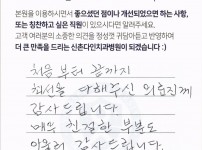 본원을 이용하시면서 좋으셨던 점이나 개선되었으면 하는 사항,
또는 칭찬하고 싶은 직원이 있으시다면 알려주세요.
고객 여러분의 소중한 의견을 정성껏 귀담아듣고 반영하여
더 큰 만족을 드리는 신촌다인치과병원이 되겠습니다 :)
처음부터 끝까지
최선을 다해주신 의료진께
감사드립니다
매우 친절한 부분도
아울러 감사드립니다.